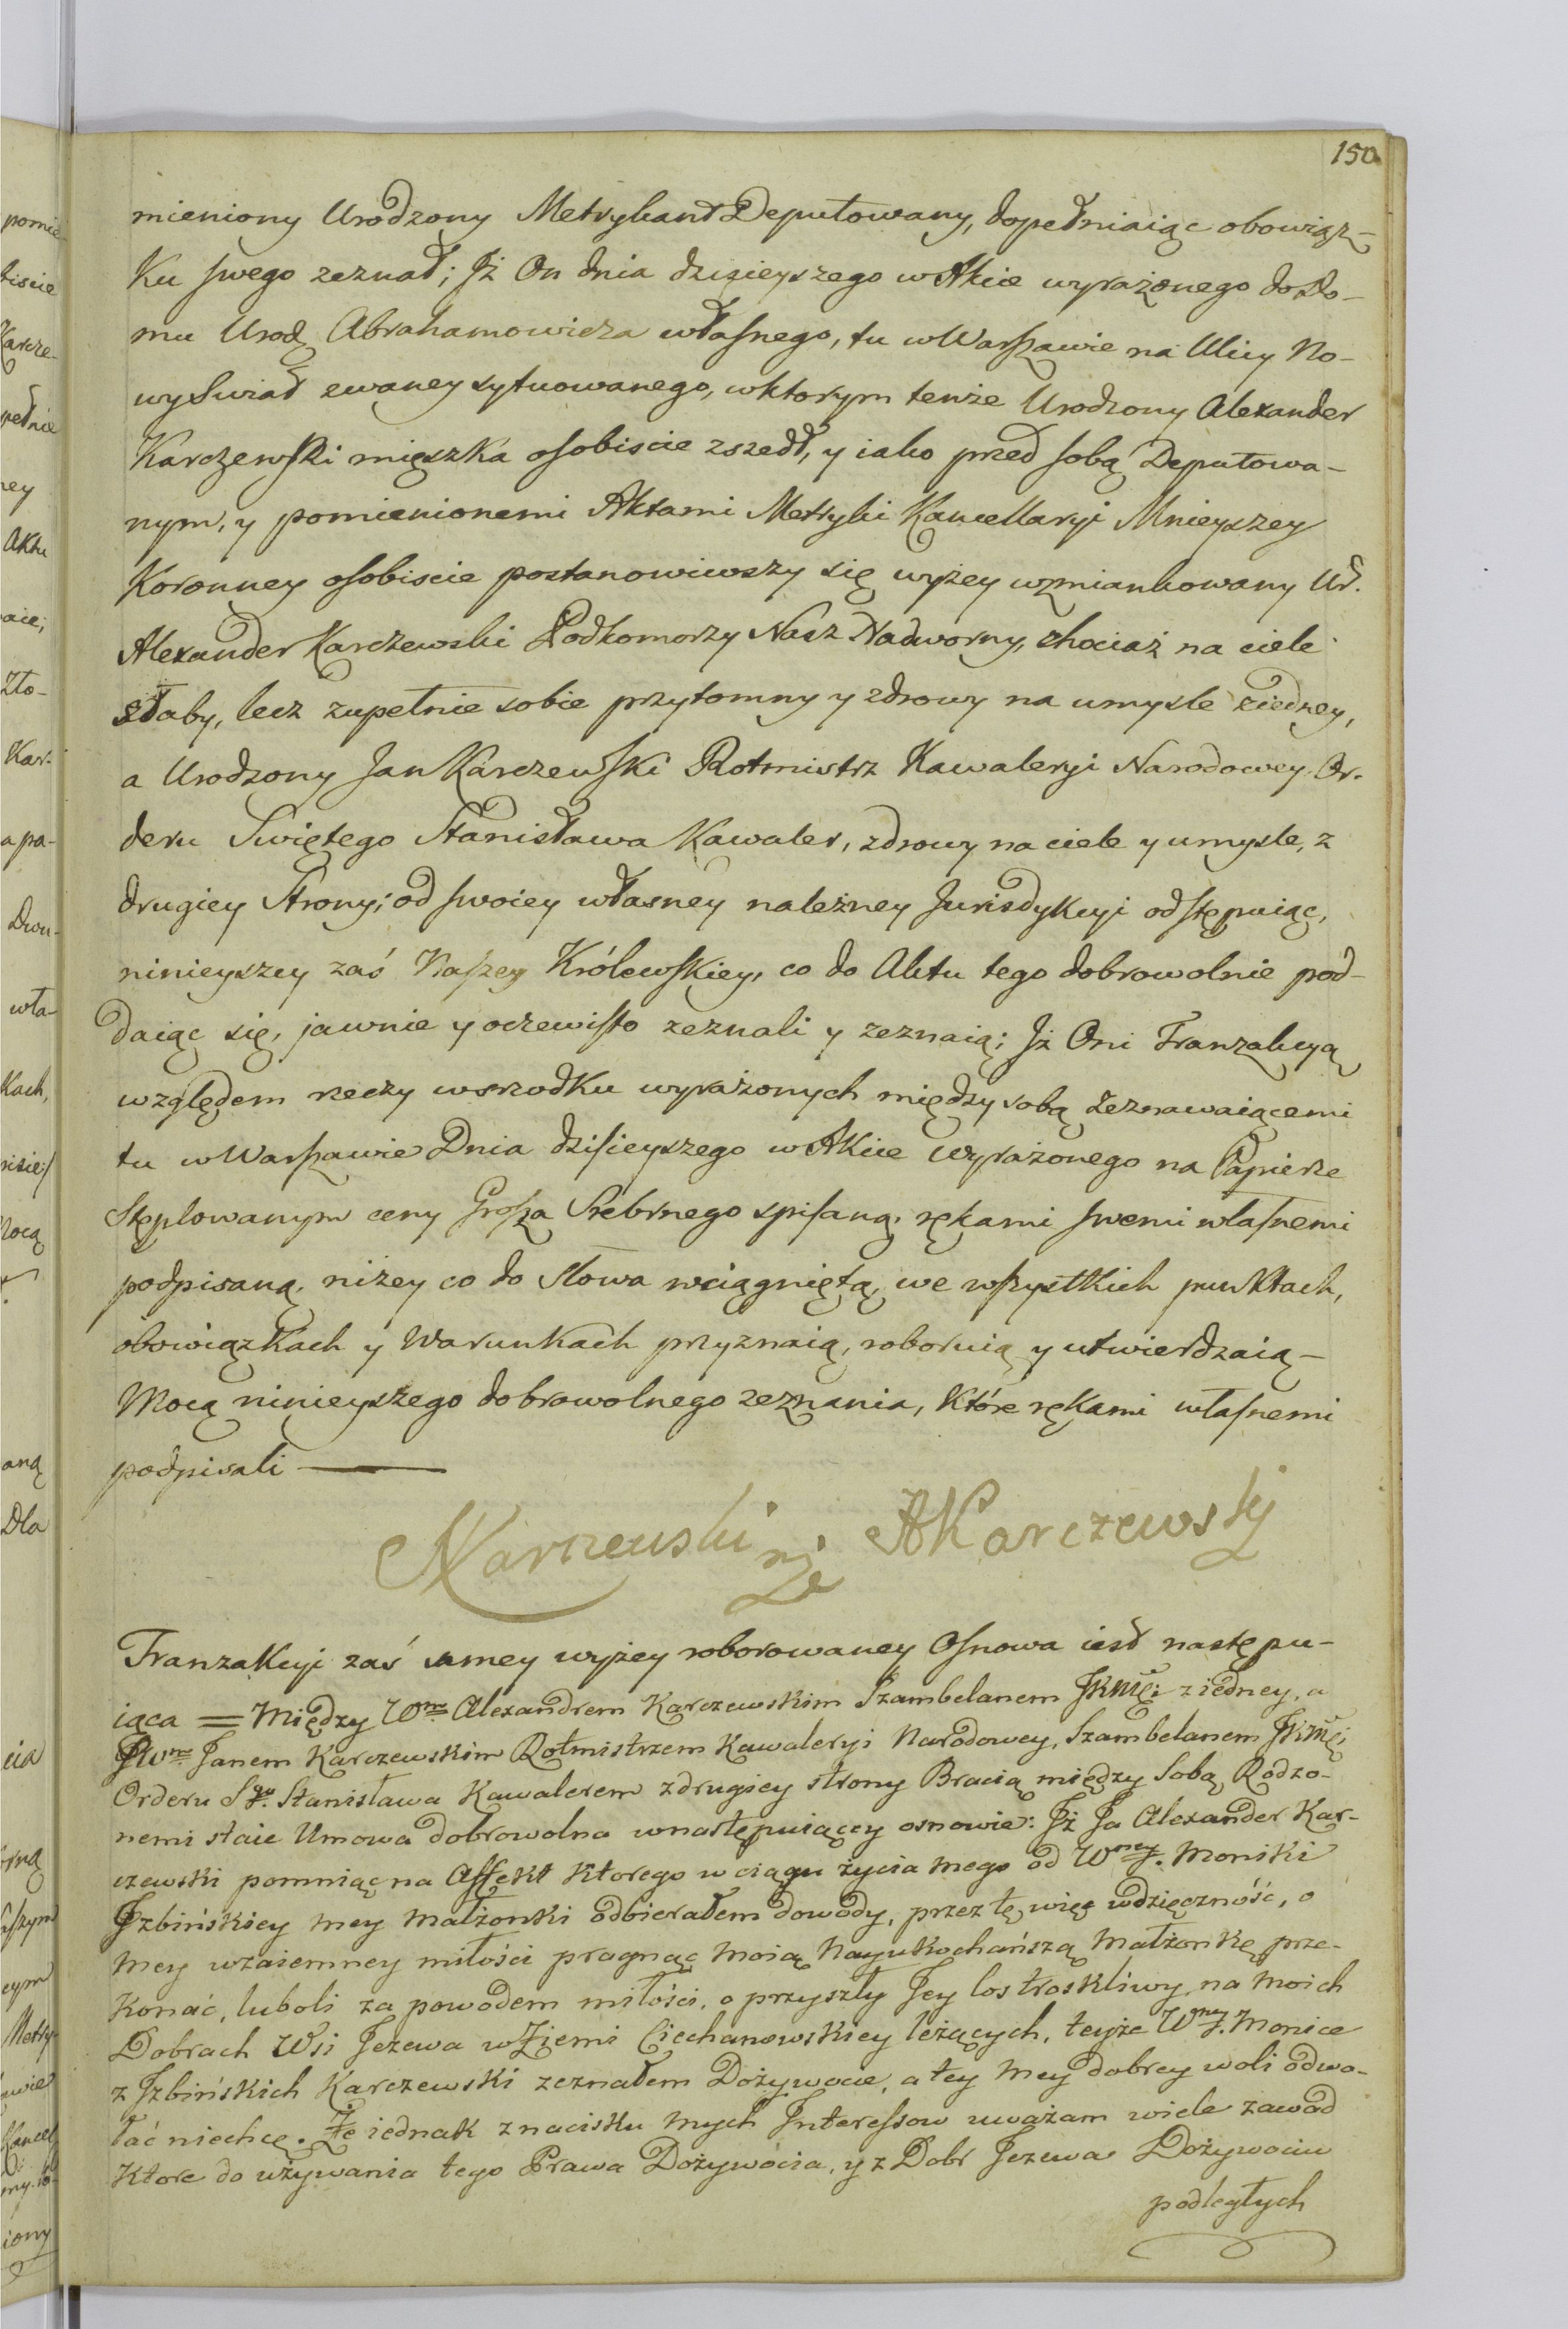 150
mieniony Urodzony Metrykant Deputowany, dopełniaiąc obowiąz-
ku swego zeznał; Jż On dnia dzisieyszego w Akcie wyrażonego do Do-
mu Urod. Abrahamowicza własnego, tu w Warszawie na Ulicy No-
wy Swiat zwaney sytuowanego, w ktorym tenże Urodzony Alexander
Karczewski mięszka osobiscie zszedł, y iako przed sobą Deputowa-
nym, y pomienionemi Aktami Metryki Kancellaryi Mnieyszey
Koronney osobiscie postanowiwszy się wyżey wzmiankowany Ur.
Alexander Karczewski Podkomorzy Nasz Nadworny, chociaż na ciele
słaby, lecz zupełnie sobie przytomny y zdrowy na umysle z iedney,
a Urodzony Jan Karczewski Rotmistrz Kawaleryi Narodowey Or-
deru Swiętego Stanisława Kawaler, zdrowy na ciele y umysle, z
drugiey Strony; od swoiey własney należney Jurisdykcyi odstępuiąc,
ninieyszey zaś Naszey Królewskiey, co do Aktu tego dobrowolnie pod-
daiąc się, jawnie y oczewisto zeznali y zeznaią; Jż Oni Tranzakcyą
względem rzeczy wsrzodku wyrażonych między sobą Zeznawaiącemi
tu w Warszawie Dnia dzisieyszego w Akcie wyrażonego na Papierze
Stęplowanym ceny Grosza Srebrnego spisaną, rękami swemi własnemi
podpisaną, niżey co do Słowa wciągniętą, we wszystkich punktach,
obowiązkach y Warunkach przyznaią, roboruią y utwierdzaią –
Mocą ninieyszego dobrowolnego zeznania, które rękami własnemi
podpisali —
Karczewski AKarczewsky
Tranzakcyi zaś samey wyżey roborowaney Osnowa iest następu-
iąca = Między Wm Alexandrem Karczewskim Szambelanem JKMCi z iedney, a
JWm Janem Karczewskim Rotmistrzem Kawaleryi Narodowey, Szambelanem JKMCi
Orderu Sgo. Stanisława Kawalerem z drugiey strony Bracią między Sobą Rodzo-
nemi staie Umowa dobrowolna w następuiącey osnowie: Jż Ja Alexander Kar-
czewski pomniąc na Affekt ktorego w ciągu życia mego od WneyJ. Moniki
Jzbińskiey mey małżonki odbierałem dowody, przez tę więc wdzięczność, o
mey wzaiemney miłości pragnąc moią Nayukochańszą Małżonkę prze-
konać, luboli za powodem miłości, o przyszły Jey los troskliwy, na moich
Dobrach Wsi Jeżewa w Ziemi Ciechanowskiey leżących, teyże WneyJ. Monice
z Jzbińskich Karczewski zeznałem Dożywocie, a tey mey dobrey woli odwo-
łać niechcę. Że iednak z nacisku mych Jnteressow uważam wiele zawad
ktore do używania tego Prawa Dożywocia, y z Dobr Jezewa Dożywociu
podległych